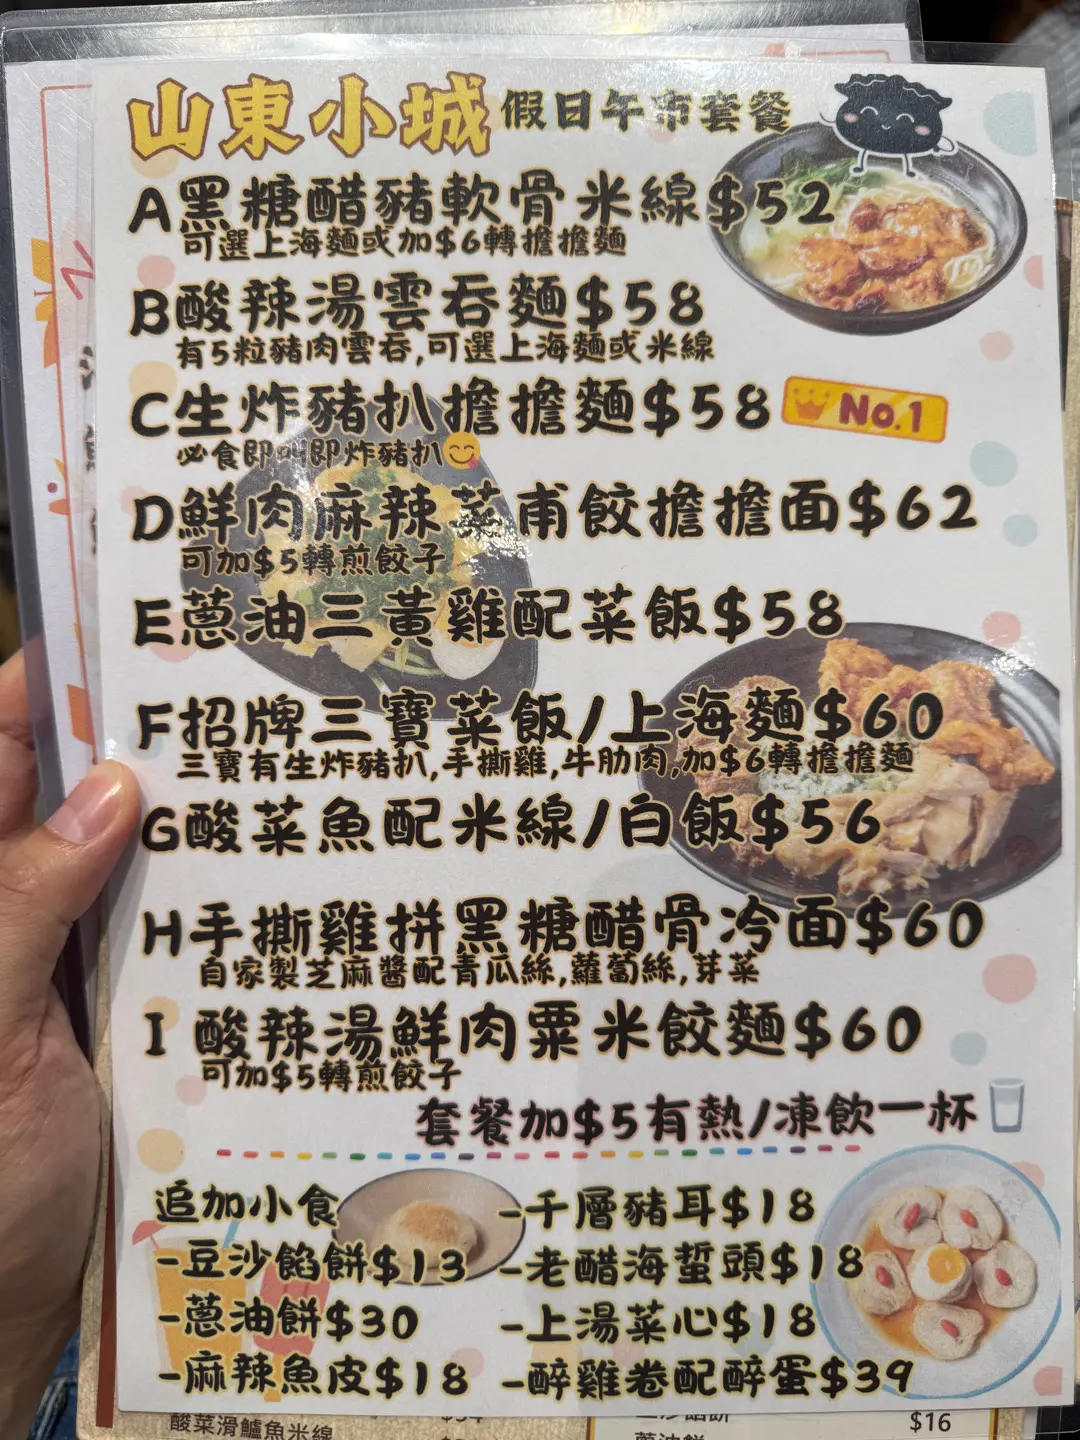 山東小城 假日午市套餐
A黑糖醋豬軟骨米線$52
可選上海麵或加$6轉擔擔麵
B酸辣湯雲吞麵$58
有5粒豬肉雲吞,可選上海麵或米線
C生炸豬扒擔擔麵$58 No.1
必食即叫即炸豬扒😋
D鮮肉麻辣菜甫餃擔擔面$62
可加$5轉煎餃子
E蔥油三黃雞配菜飯$58
F招牌三寶菜飯/上海麵$60
三寶有生炸豬扒,手撕雞,牛肋肉,加$6轉擔擔麵
G酸菜魚配米線/白飯$56
H手撕雞拼黑糖醋骨冷面$60
自家製芝麻醬配青瓜絲,蘿蔔絲,芽菜
I 酸辣湯鮮肉粟米餃麵$60
可加$5轉煎餃子
套餐加$5有熱/凍飲一杯
追加小食
-豆沙餡餅$13
-蔥油餅$30
-麻辣魚皮$18
-千層豬耳$18
-老醋海蜇頭$18
-上湯菜心$18
-醉雞卷配醉蛋$39
酸菜滑鱸魚米線
$16